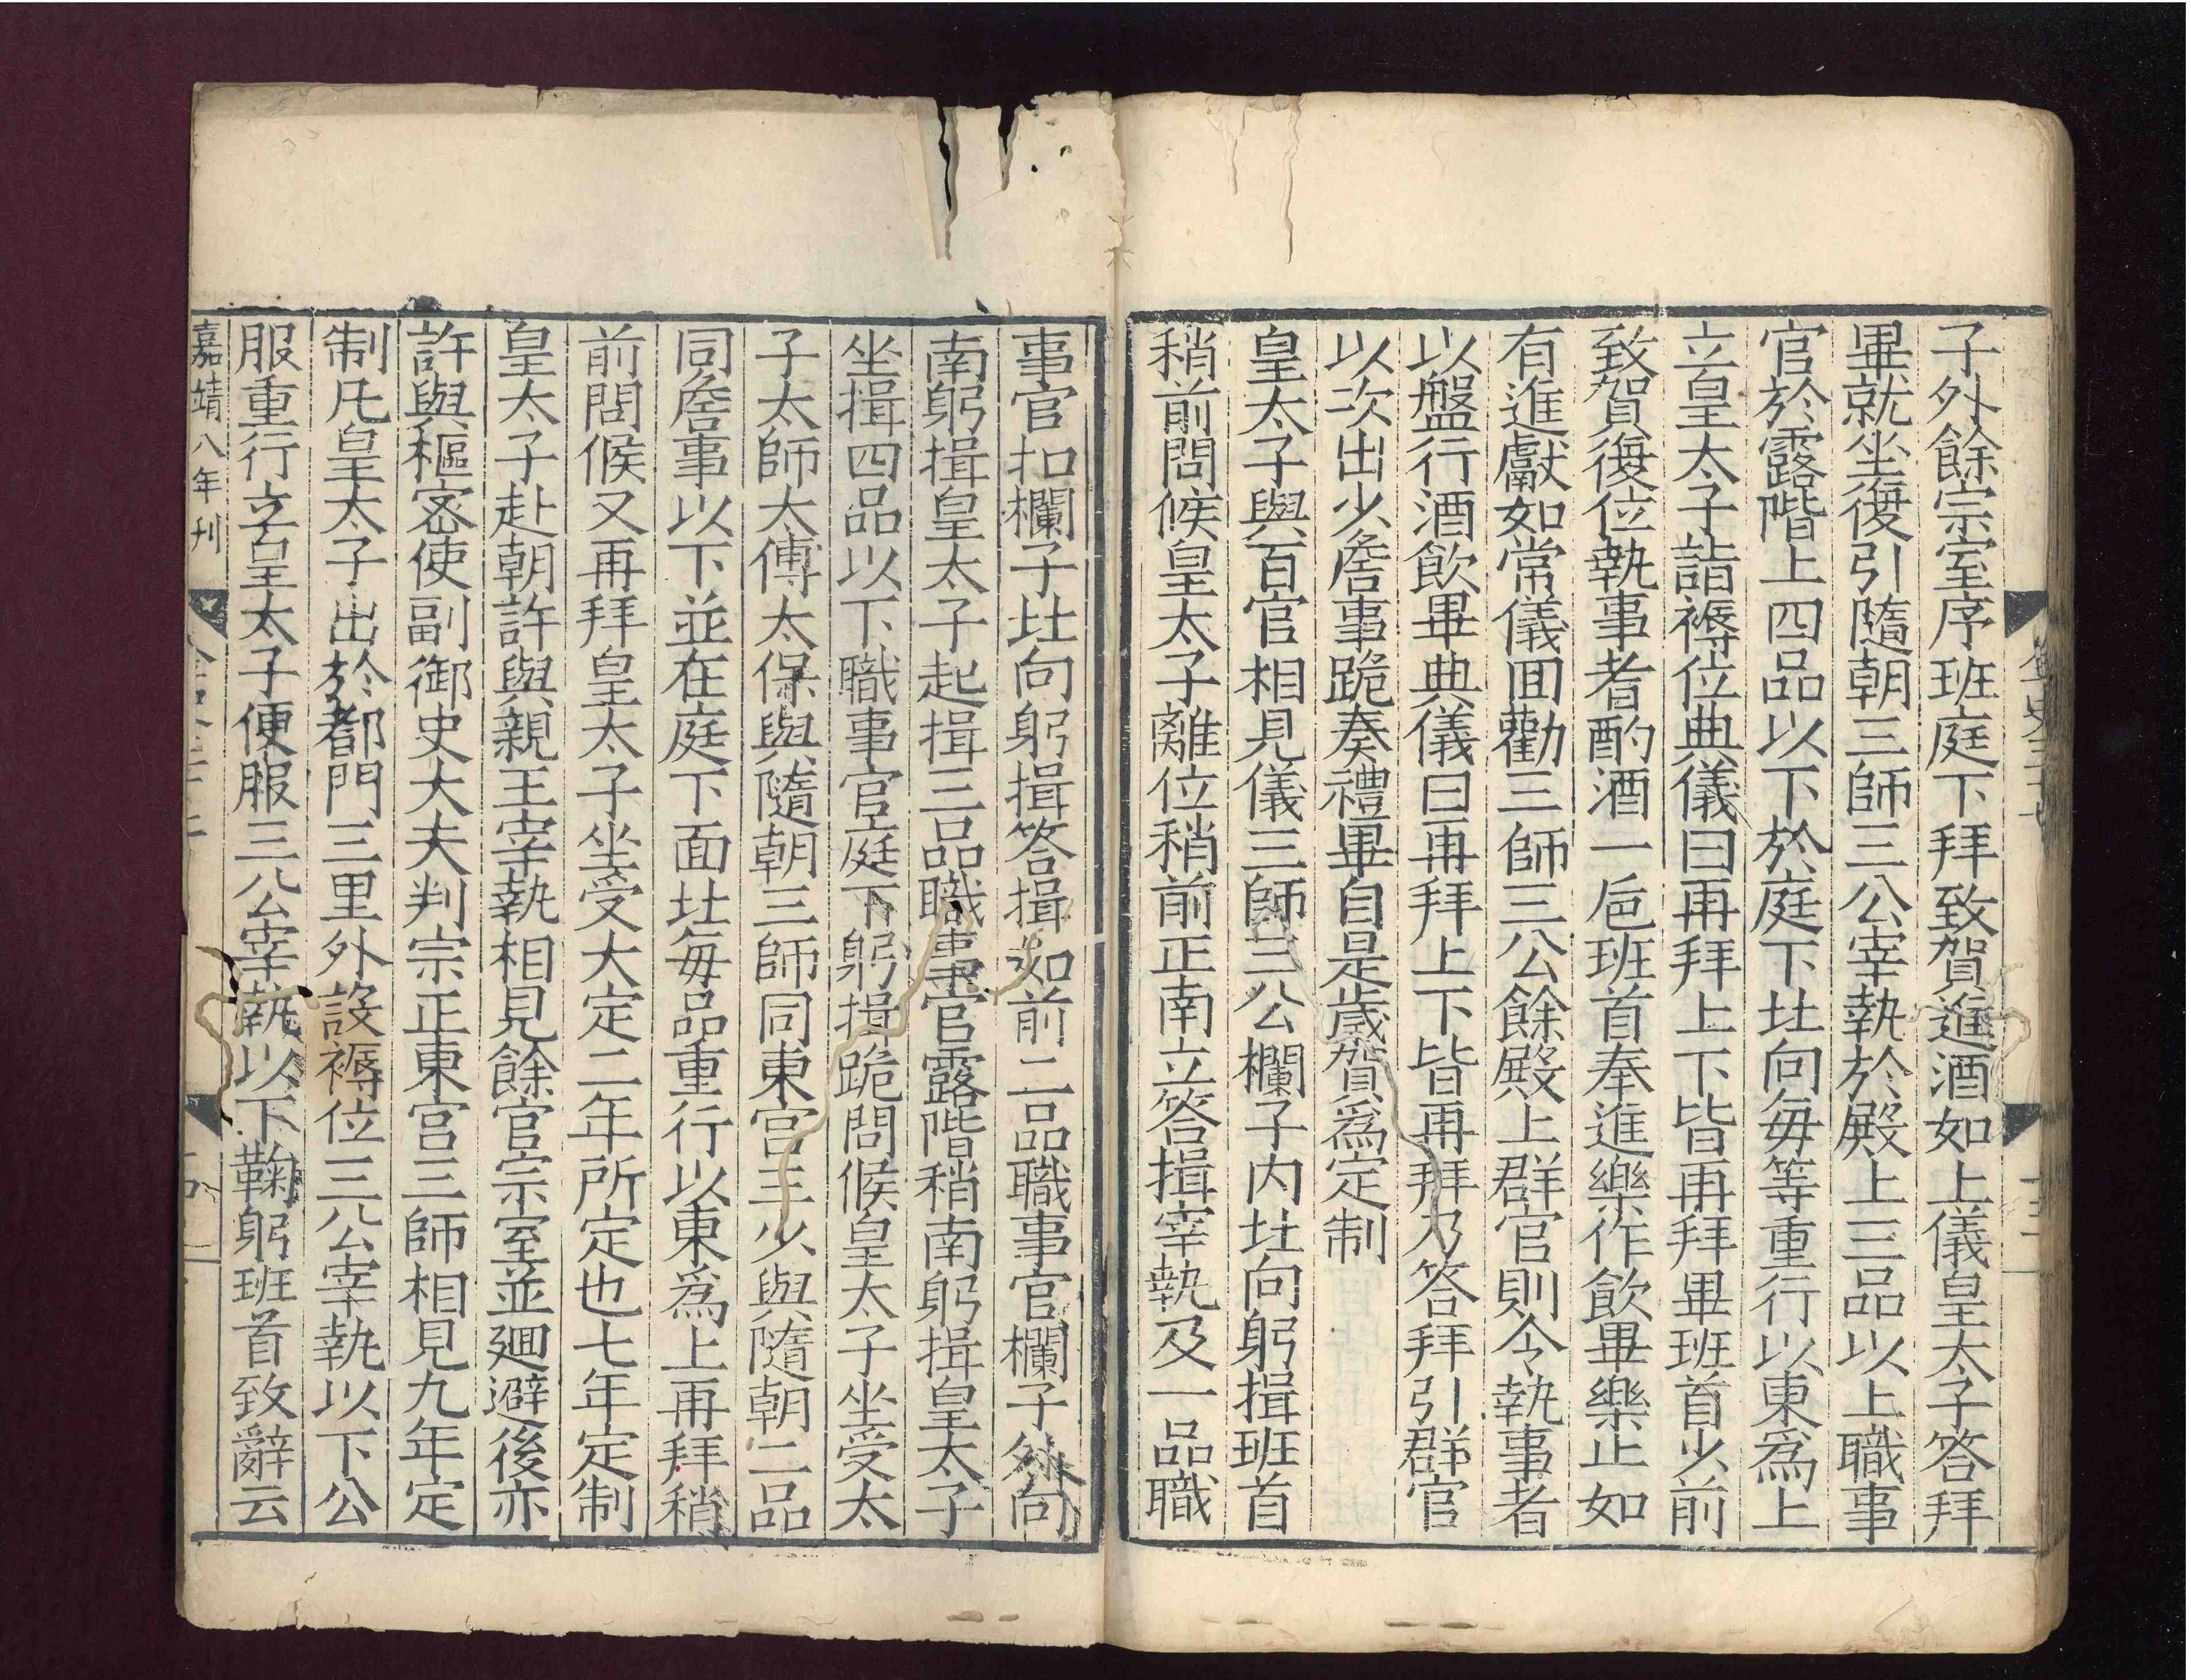 子外餘宗室序班庭下拜致賀進酒如上儀皇太子答拜
畢就坐復引隨朝三師三公宰執於殿上三品以上職事
官於露階上四品以下於庭下北向每等重行以東爲上
立皇太子詣褥位典儀曰再拜上下皆再拜畢班首少前
致賀復位執事者酌酒一巵班首奉進樂作飲畢樂止如
有進獻如常儀回勸三師三公餘殿上群官則令執事者
以盤行酒飲畢典儀曰再拜上下皆再拜乃答拜引群官
以次出少詹事跪奏禮畢自是歲賀爲定制
皇太子與百官相見儀三師三公欄子内北向躬揖班首
稍前問候皇太子離位稍前正南立答揖宰執及一品職
事官扣欄子北向躬揖答揖如前二品職事官欄子外向
南躬揖皇太子起揖三品職事官露階稍南躬揖皇太子
坐揖四品以下職事官庭下躬揖跪問候皇太子坐受太
子太師太傅太保與隨朝三師同東宮三少與隨朝二品
同詹事以下並在庭下面北每品重行以東爲上再拜稍
前問候又再拜皇太子坐受大定二年所定也七年定制
皇太子赴朝許與親王宰執相見餘官宗室並迴避後亦
許與樞密使副御史大夫判宗正東宮三師相見九年定
制凡皇太子出於都門三里外設褥位三公宰執以下公
服重行立皇太子便服三公宰執以下鞠躬班首致辭云
嘉靖八年刊